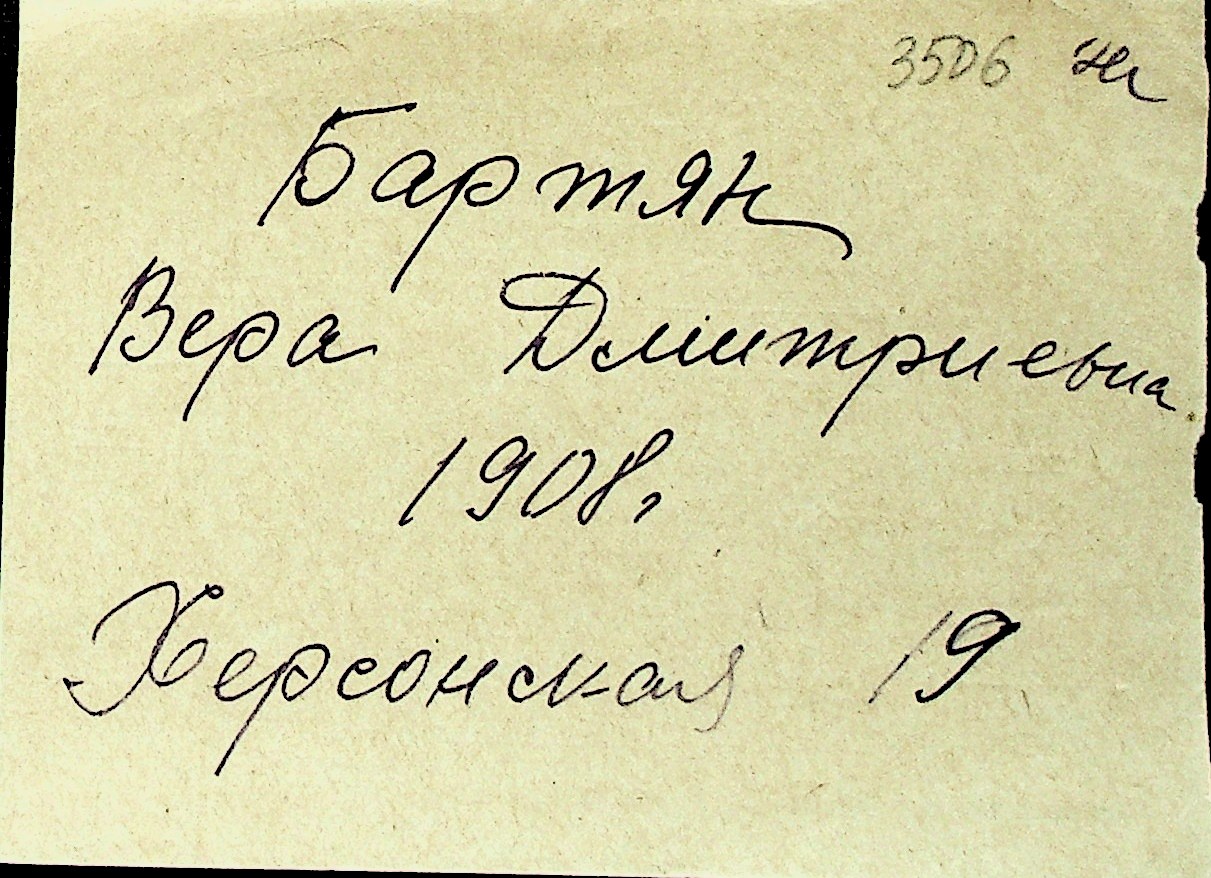 3506
Бартян
Вера Дмитриевна
1908,
Херсонская 19